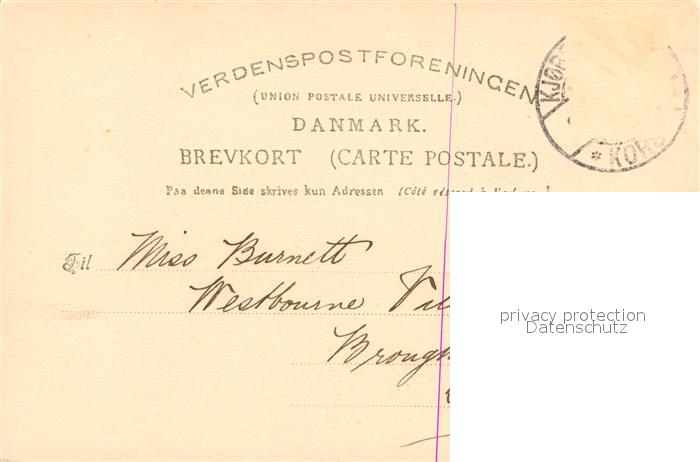 VERDENSPOSTFORENINGEN
(UNION POSTALE UNIVERSELLE.)
DANMARK.
BREVKORT (CARTE POSTALE.)
Paa denne Side skrives kun Adressen (Côté réservé à l'adresse)
KJØB
* KORS
Til Miss Burnett
Westbourne Vil
Brough
privacy protection
Datenschutz